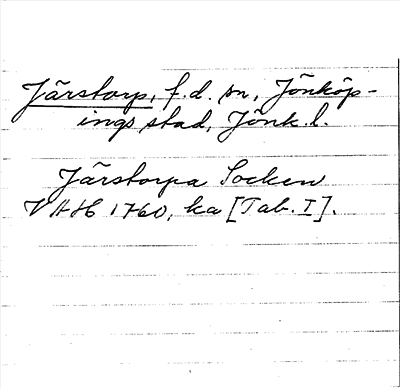 Järstorp, f.d. sn, Jönköp-
ings stad, Jönk. l.
Järstorpa Socken
VAH 1760, ka [Tab. I].